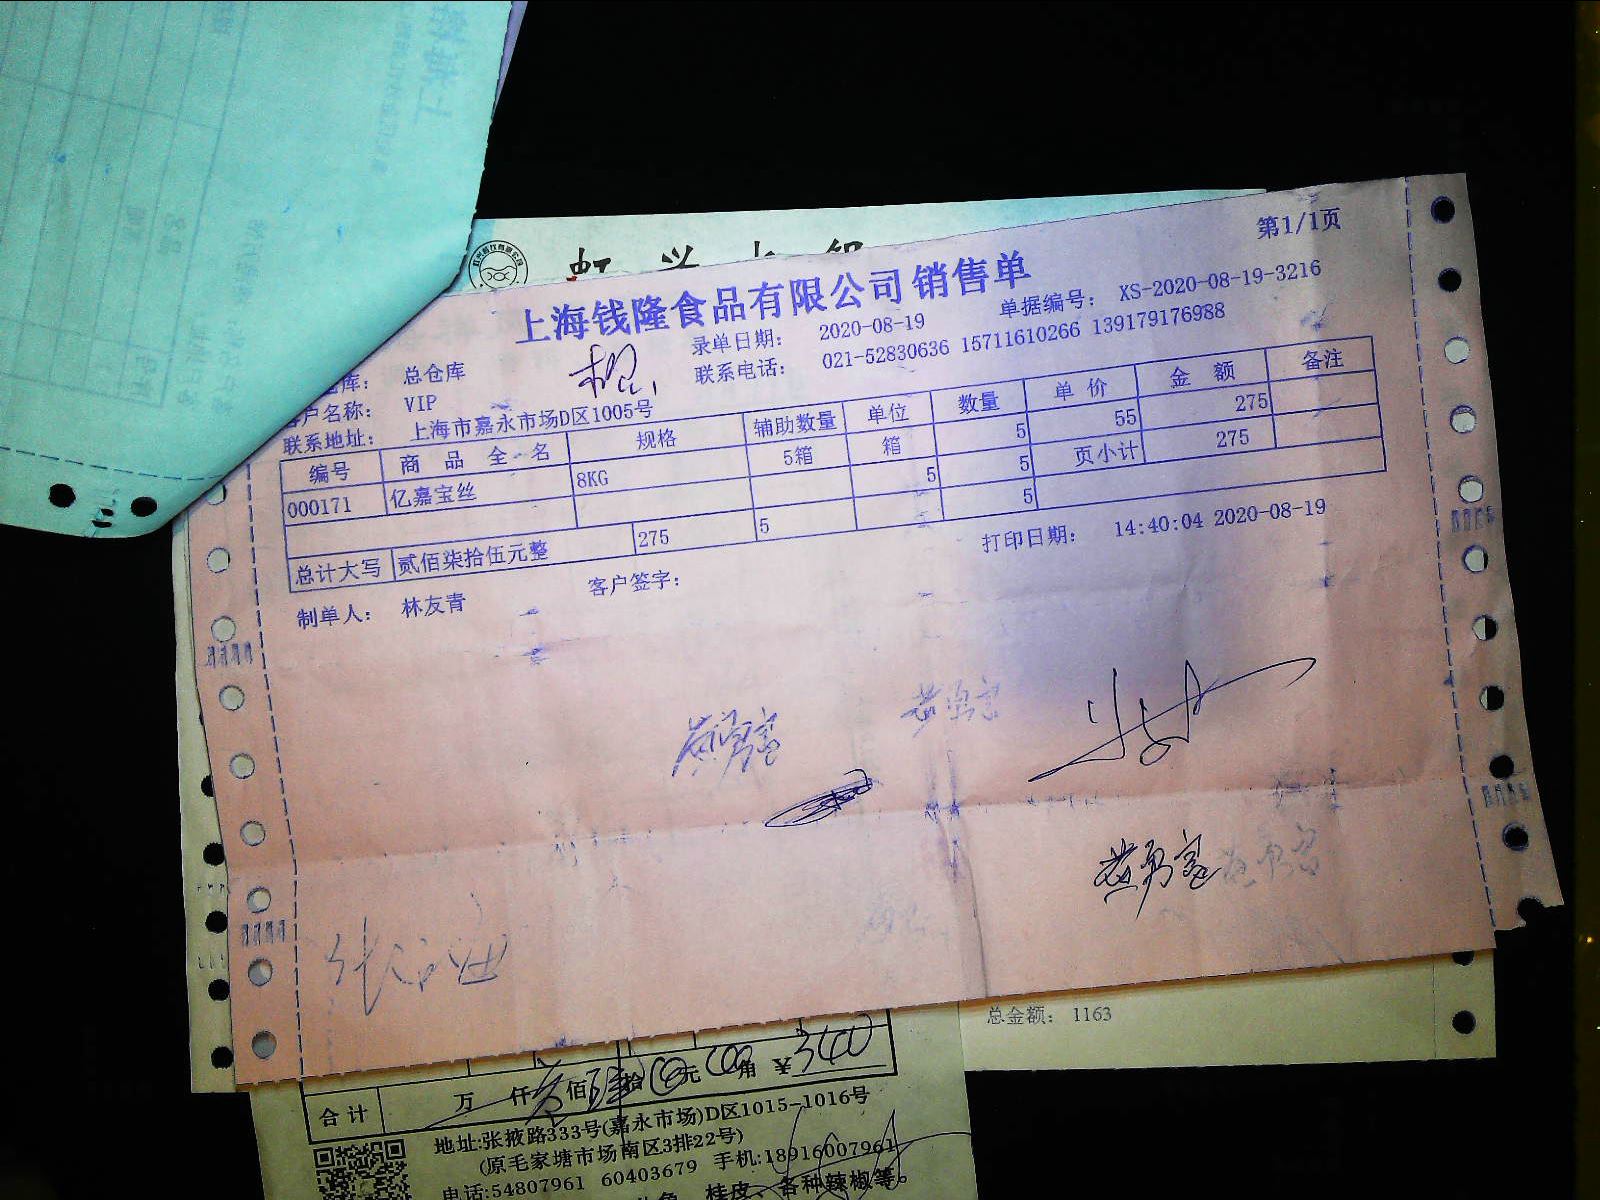 第1/1页
上海钱隆食品有限公司 销售单
单据编号: XS-2020-08-19-3216
录单日期: 2020-08-19
库: 总仓库
联系电话: 021-52830636 15711610266 139179176988
户名称: VIP
联系地址: 上海市嘉永市场D区1005号
编号 商品全名 规格 辅助数量 单位 数量 单价 金额 备注
000171 亿嘉宝丝 8KG 5箱 箱 5 55 275
5 5 页小计 275
总计大写 贰佰柒拾伍元整 275 5 5
打印日期: 14:40:04 2020-08-19
制单人: 林友青 客户签字:
黄勇富
黄勇富
总金额: 1163
合计 万 仟 佰 拾 元 角 ¥340
地址:张掖路333号(嘉永市场)D区1015-1016号
(原毛家塘市场南区3排22号)
电话:54807961 60403679 手机:18916007961
桂皮、各种辣椒等。